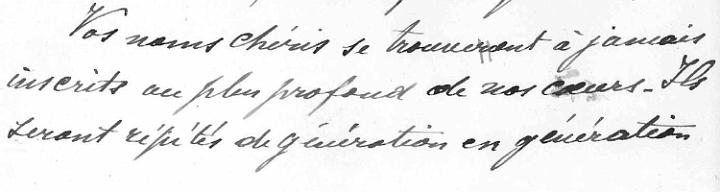 Vos noms chéris se trouveront à jamais
inscrits au plus profond de nos cœurs. Ils
seront répétés de génération en génération